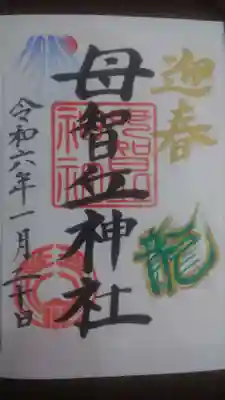 迎春
龍
母智丘神社
令和六年一月二十日